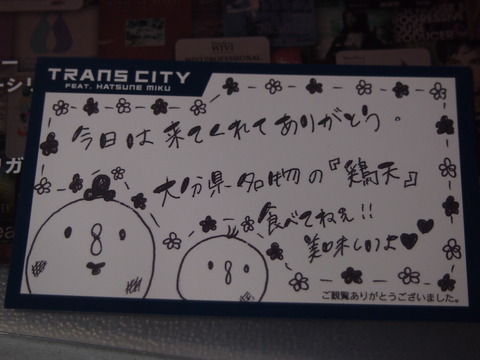 TRANS CITY
FEAT. HATSUNE MIKU
今日は来てくれてありがとう。
大分県名物の『鶏天』
食べてねぇ!!
美味しいよ♥♥
ご観覧ありがとうございました。